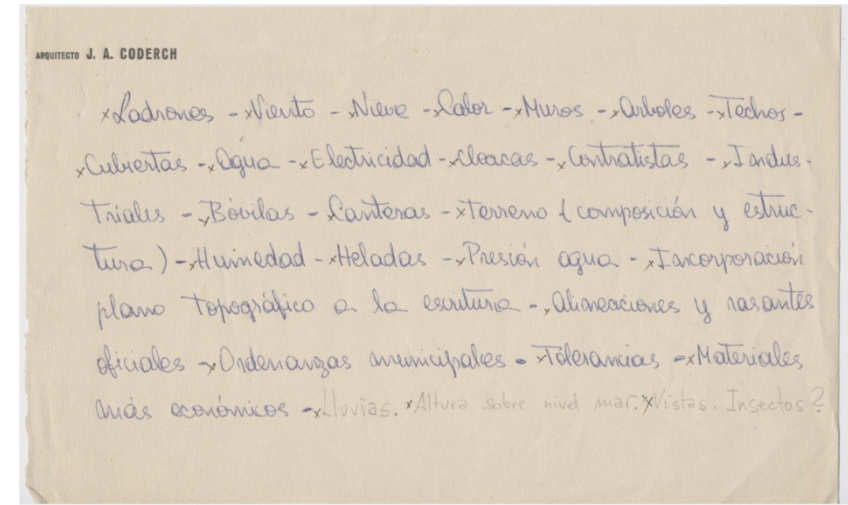 ARQUITECTO J. A. CODERCH
×Ladrones - ×Viento - ×Nieve - ×Calor - ×Muros - ×Arboles - ×Techos -
×Cubiertas - ×Agua - ×Electricidad - ×Cloacas - ×Contratistas - ×Indus-
triales - ×Bóvilas - ×Canteras - ×Terreno (composición y estruc-
tura) - ×Humedad - ×Heladas - ×Presión agua - ×Incorporación
plano topográfico a la escritura - ×Alineaciones y rasantes
oficiales - ×Ordenanzas municipales - ×Tolerancias - ×Materiales
más económicos - ×Lluvias. ×Altura sobre nivel mar. ×Vistas. Insectos?